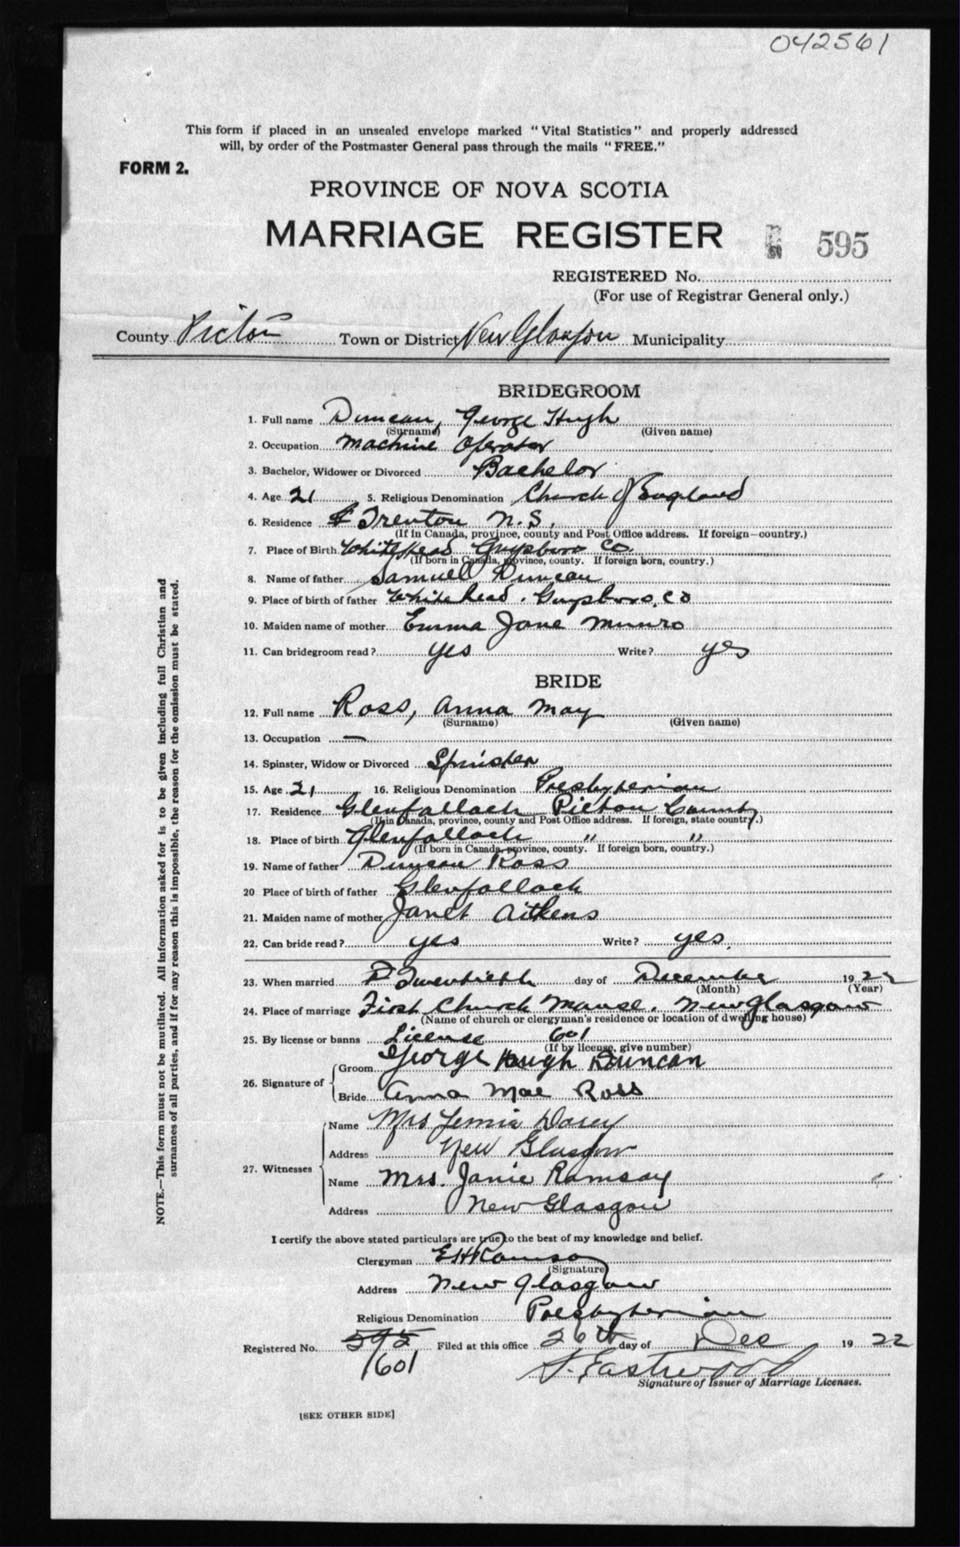 042561
This form if placed in an unsealed envelope marked "Vital Statistics" and properly addressed
will, by order of the Postmaster General pass through the mails "FREE."
FORM 2.
PROVINCE OF NOVA SCOTIA
MARRIAGE REGISTER
595
REGISTERED No.
(For use of Registrar General only.)
County Pictou Town or District New Glasgow Municipality
BRIDEGROOM
1. Full name Duncan, George Hugh
(Surname) (Given name)
2. Occupation Machine Operator
3. Bachelor, Widower or Divorced Bachelor
4. Age 21 5. Religious Denomination Church of England
6. Residence Trenton N.S.
(If in Canada, province, county and Post Office address. If foreign—country.)
7. Place of Birth White Head Guysboro Co
(If born in Canada, province, county. If foreign born, country.)
8. Name of father Samuel Duncan
9. Place of birth of father White head. Guysboro, Co
10. Maiden name of mother Emma Jane Munro
11. Can bridegroom read? yes Write? yes
BRIDE
12. Full name Ross, Anna May
(Surname) (Given name)
13. Occupation —
14. Spinster, Widow or Divorced Spinster
15. Age 21 16. Religious Denomination Presbyterian
17. Residence Glenfalloch Pictou County
(If in Canada, province, county and Post Office address. If foreign, state country.)
18. Place of birth Glenfalloch " "
(If born in Canada, province, county. If foreign born, country.)
19. Name of father Duncan Ross
20. Place of birth of father Glenfalloch
21. Maiden name of mother Janet Aitkens
22. Can bride read? yes Write? yes.
23. When married Twentieth day of December 1922
(Month) (Year)
24. Place of marriage First Church Manse. New Glasgow
(Name of church or clergyman's residence or location of dwelling house)
25. By license or banns License 601
(If by license, give number)
26. Signature of Groom George Hugh Duncan
Bride Anna Mae Ross
27. Witnesses
Name Mrs
Address New Glasgow
Name Mrs. Janie Ramsay
Address New Glasgow
I certify the above stated particulars are true to the best of my knowledge and belief.
Clergyman
(Signature)
Address New Glasgow
Religious Denomination Presbyterian
Registered No. 595 Filed at this office 26th day of Dec 1922
601
S. Eastwood
Signature of Issuer of Marriage Licenses.
[SEE OTHER SIDE]
NOTE.—This form must not be mutilated. All information asked for is to be given including full Christian and
surnames of all parties, and if for any reason this is impossible, the reason for the omission must be stated.